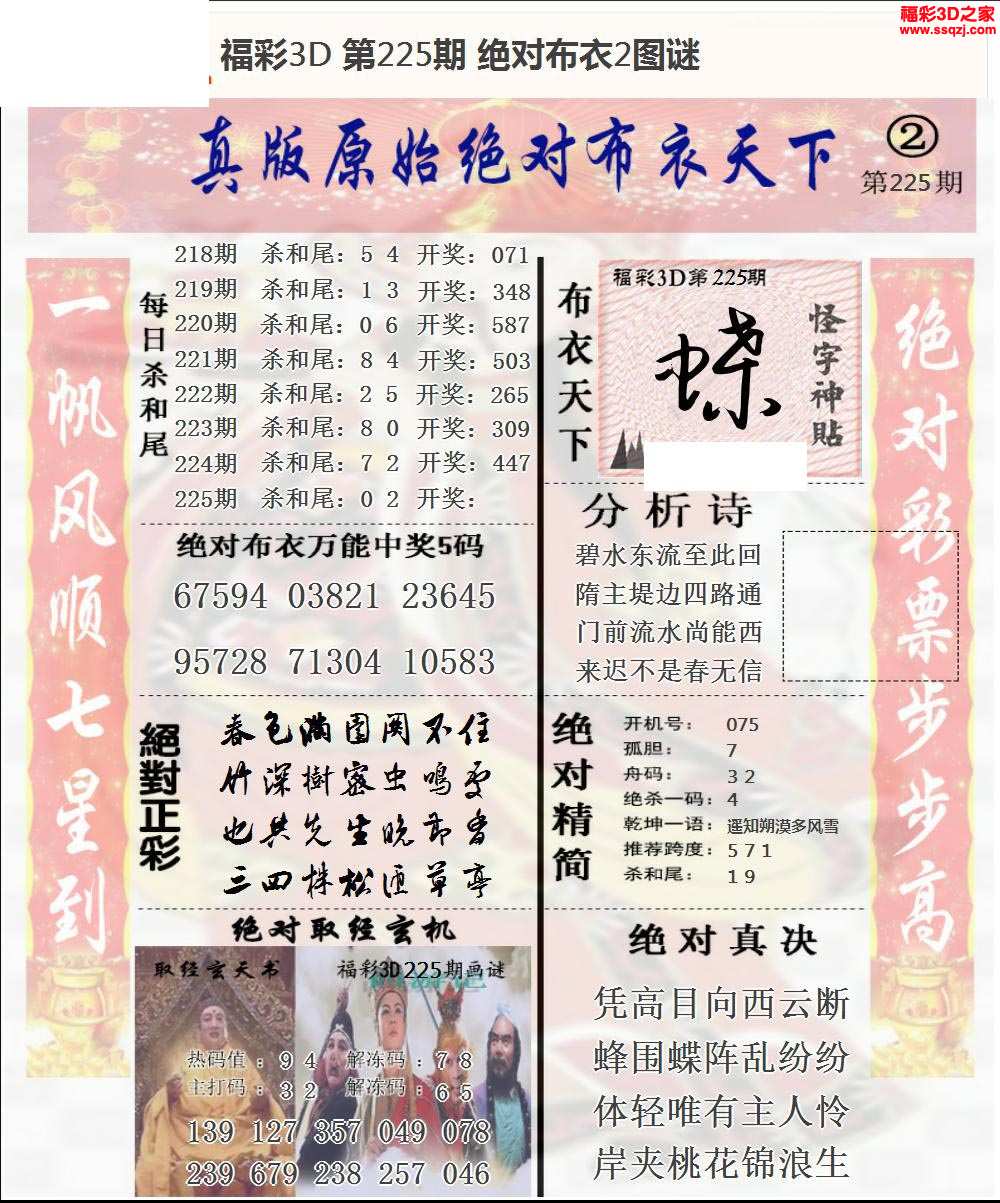 福彩3D之家
www.ssqzj.com
福彩3D 第225期 绝对布衣2图谜
真版原始绝对布衣天下
②
第225期
一帆风顺七星到
每日杀和尾
218期 杀和尾：5 4 开奖：071
219期 杀和尾：1 3 开奖：348
220期 杀和尾：0 6 开奖：587
221期 杀和尾：8 4 开奖：503
222期 杀和尾：2 5 开奖：265
223期 杀和尾：8 0 开奖：309
224期 杀和尾：7 2 开奖：447
225期 杀和尾：0 2 开奖：
绝对布衣万能中奖5码
67594 03821 23645
95728 71304 10583
絕對正彩
春色满园关不住
竹深樹密虫鳴处
也共先生晚節香
三四株松匝草亭
绝对取经玄机
取经玄天书
福彩3D225期画谜
热码值：9 4 解冻码：7 8
主打码：3 2 解冻码：6 5
139 127 357 049 078
239 679 238 257 046
布衣天下
福彩3D第225期
蝶
怪字神貼
分析诗
碧水东流至此回
隋主堤边四路通
门前流水尚能西
来迟不是春无信
绝对精简
开机号： 075
孤胆： 7
舟码： 3 2
绝杀一码：4
乾坤一语：遥知朔漠多风雪
推荐跨度：5 7 1
杀和尾： 1 9
绝对真决
凭高目向西云断
蜂围蝶阵乱纷纷
体轻唯有主人怜
岸夹桃花锦浪生
绝对彩票步步高